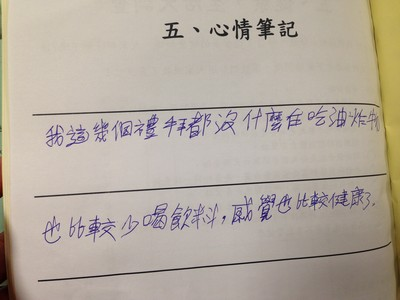 五、心情筆記
我這幾個禮拜都沒什麼在吃油炸物
也比較少喝飲料，感覺也比較健康了.